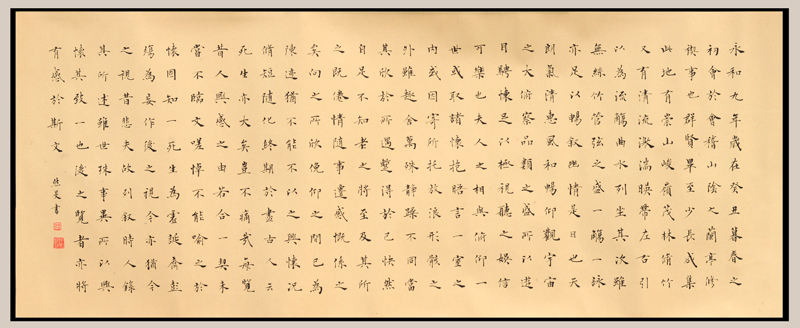 永和九年歲在癸丑暮春之
初會於會稽山陰之蘭亭脩
禊事也群賢畢至少長咸集
此地有崇山峻嶺茂林脩竹
又有清流激湍暎帶左右引
以為流觴曲水列坐其次雖
無絲竹管弦之盛一觴一詠
亦足以暢叙幽情是日也天
朗氣清惠風和暢仰觀宇宙
之大俯察品類之盛所以遊
目騁懷足以極視聽之娛信
可樂也夫人之相與俯仰一
世或取諸懷抱晤言一室之
内或因寄所托放浪形骸之
外雖趣舍萬殊靜躁不同當
其欣於所遇蹔得於己怏然
自足不知老之將至及其所
之既倦情隨事遷感慨係之
矣向之所欣俛仰之間已為
陳迹猶不能不以之興懷況
脩短隨化終期於盡古人云
死生亦大矣豈不痛哉每覽
昔人興感之由若合一契未
嘗不臨文嗟悼不能喻之於
懷固知一死生為虛誕齊彭
殤為妄作後之視今亦猶今
之視昔悲夫故列叙時人錄
其所述雖世殊事異所以興
懷其致一也後之覽者亦將
有感於斯文